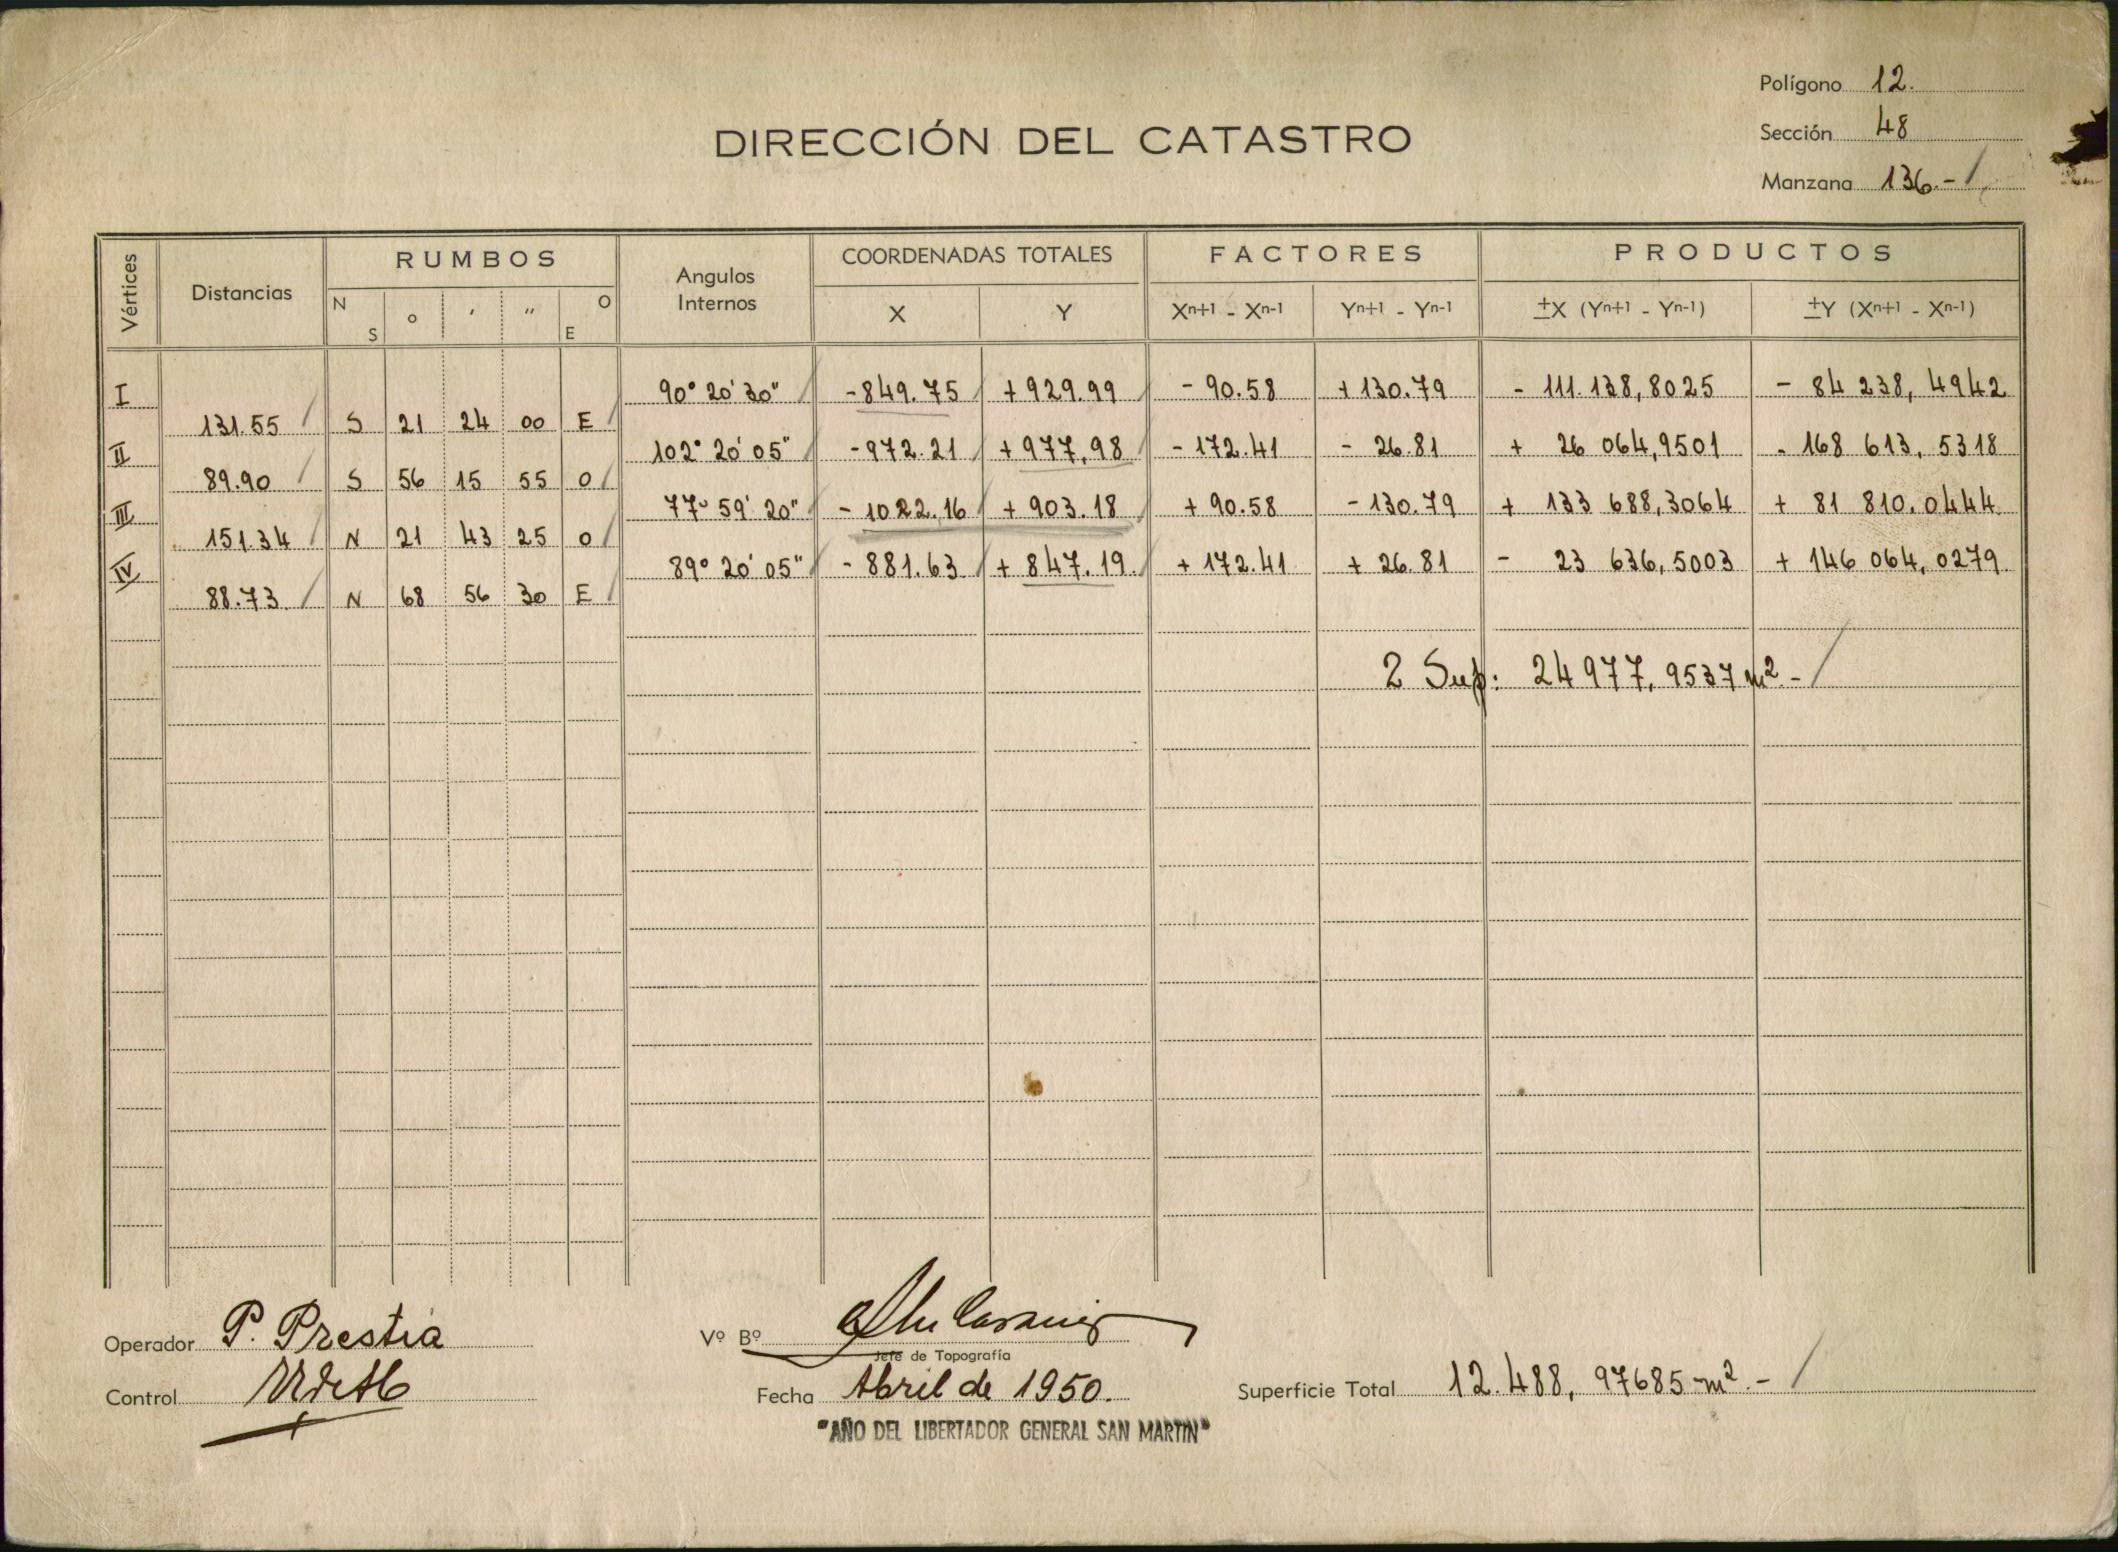 Polígono 12.
Sección 48
Manzana 136.-/
DIRECCIÓN DEL CATASTRO
Vértices Distancias RUMBOS Angulos Internos COORDENADAS TOTALES FACTORES PRODUCTOS
N S o ′ ″ O E X Y Xn+1 - Xn-1 Yn+1 - Yn-1 ±X (Yn+1 - Yn-1) ±Y (Xn+1 - Xn-1)
I 90° 20' 30" -849.75 +929.99 -90.58 +130.79 - 111.138,8025 - 84 238,4942
131.55 S 21 24 00 E
II 102° 20' 05" -972.21 +977,98 -172.41 - 26.81 + 26 064,9501 - 168 613,5318
89.90 S 56 15 55 O
III 77° 59' 20" -1022.16 +903.18 +90.58 -130.79 + 133 688,3064 + 81 810.0444
151.34 N 21 43 25 O
IV 89° 20' 05" -881.63 +847.19 +172.41 +26.81 - 23 636,5003 + 146 064,0279
88.73 N 68 56 30 E
2 Sup: 24977,9537 m2.-/
Operador P. Prestia
Vº Bº
Jefe de Topografía
Control
Fecha Abril de 1950.
Superficie Total 12.488,97685 m2.-/
"AÑO DEL LIBERTADOR GENERAL SAN MARTIN"